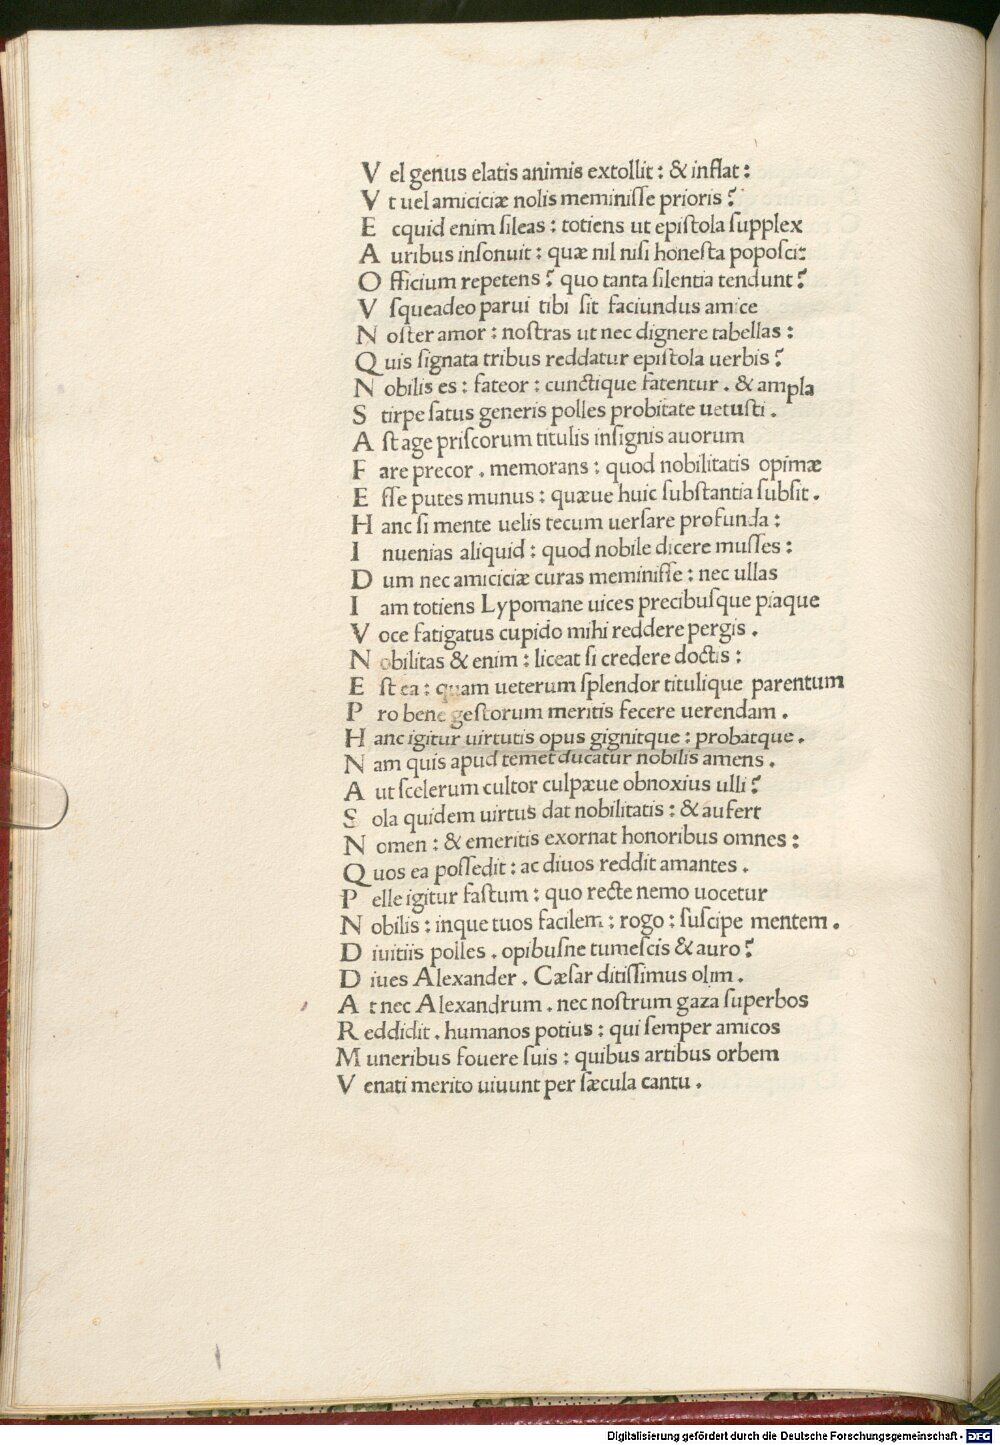 V el genus elatis animis extollit : & inflat :
V t uel amiciciæ nolis meminiſſe prioris ?
E cquid enim ſileas : totiens ut epiſtola ſupplex
A uribus inſonuit : quæ nil niſi honeſta popoſcit
O fficium repetens ? quo tanta ſilentia tendunt ?
V ſqueadeo parui tibi ſit faciundus amice
N oſter amor : noſtras ut nec dignere tabellas :
Q uis ſignata tribus reddatur epiſtola uerbis ?
N obilis es : fateor : cunctique fatentur . & ampla
S tirpe ſatus generis polles probitate uetuſti .
A ſt age priſcorum titulis inſignis auorum
F are precor . memorans : quod nobilitatis opimæ
E ſſe putes munus : quæue huic ſubſtantia ſubſit .
H anc ſi mente uelis tecum uerſare profunda :
I nuenias aliquid : quod nobile dicere muſſes :
D um nec amiciciæ curas meminiſſe : nec ullas
I am totiens Lypomane uices precibuſque piaque
V oce fatigatus cupido mihi reddere pergis .
N obilitas & enim : liceat ſi credere doctis :
E ſt ea : quam ueterum ſplendor titulique parentum
P ro bene geſtorum meritis fecere uerendam .
H anc igitur uirtutis opus gignitque : probatque .
N am quis apud temet ducatur nobilis amens .
A ut ſcelerum cultor culpæue obnoxius ulli ?
S ola quidem uirtus dat nobilitatis : & aufert
N omen : & emeritis exornat honoribus omnes :
Q uos ea poſſedit : ac diuos reddit amantes .
P elle igitur faſtum : quo recte nemo uocetur
N obilis : inque tuos facilem : rogo : ſuſcipe mentem .
D iuitiis polles . opibuſne tumeſcis & auro ?
D iues Alexander . Cæſar ditiſſimus olim .
A t nec Alexandrum . nec noſtrum gaza ſuperbos
R eddidit . humanos potius : qui ſemper amicos
M uneribus fouere ſuis : quibus artibus orbem
V enati merito uiuunt per ſæcula cantu .
Digitalisierung gefördert durch die Deutsche Forschungsgemeinschaft - DFG